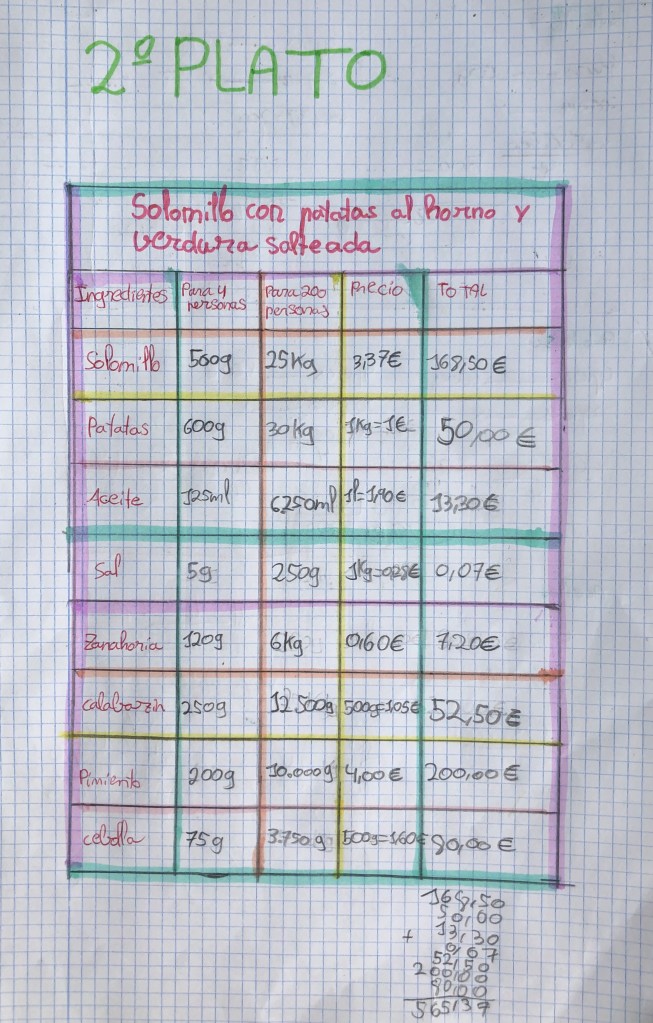 2º PLATO
Solomillo con patatas al horno y
verdura salteada
Ingredientes Para 4 personas Para 200 personas Precio TOTAL
Solomillo 500g 25Kg 3,37€ 168,50€
Patatas 600g 30Kg 1Kg=1€ 50,00€
Aceite 125ml 6250ml 1l=1,90€ 13,30€
Sal 5g 250g 1Kg=0,28€ 0,07€
Zanahoria 120g 6Kg 0,60€ 7,20€
calabazin 250g 12500g 500g=1,05€ 52,50€
Pimiento 200g 10.000g 4,00€ 200,00€
cebolla 75g 3.750g 500g=1,60€ 80,00€
168,50
50,00
+ 13,30
0,07
52,50
200,00
80,00
565,37